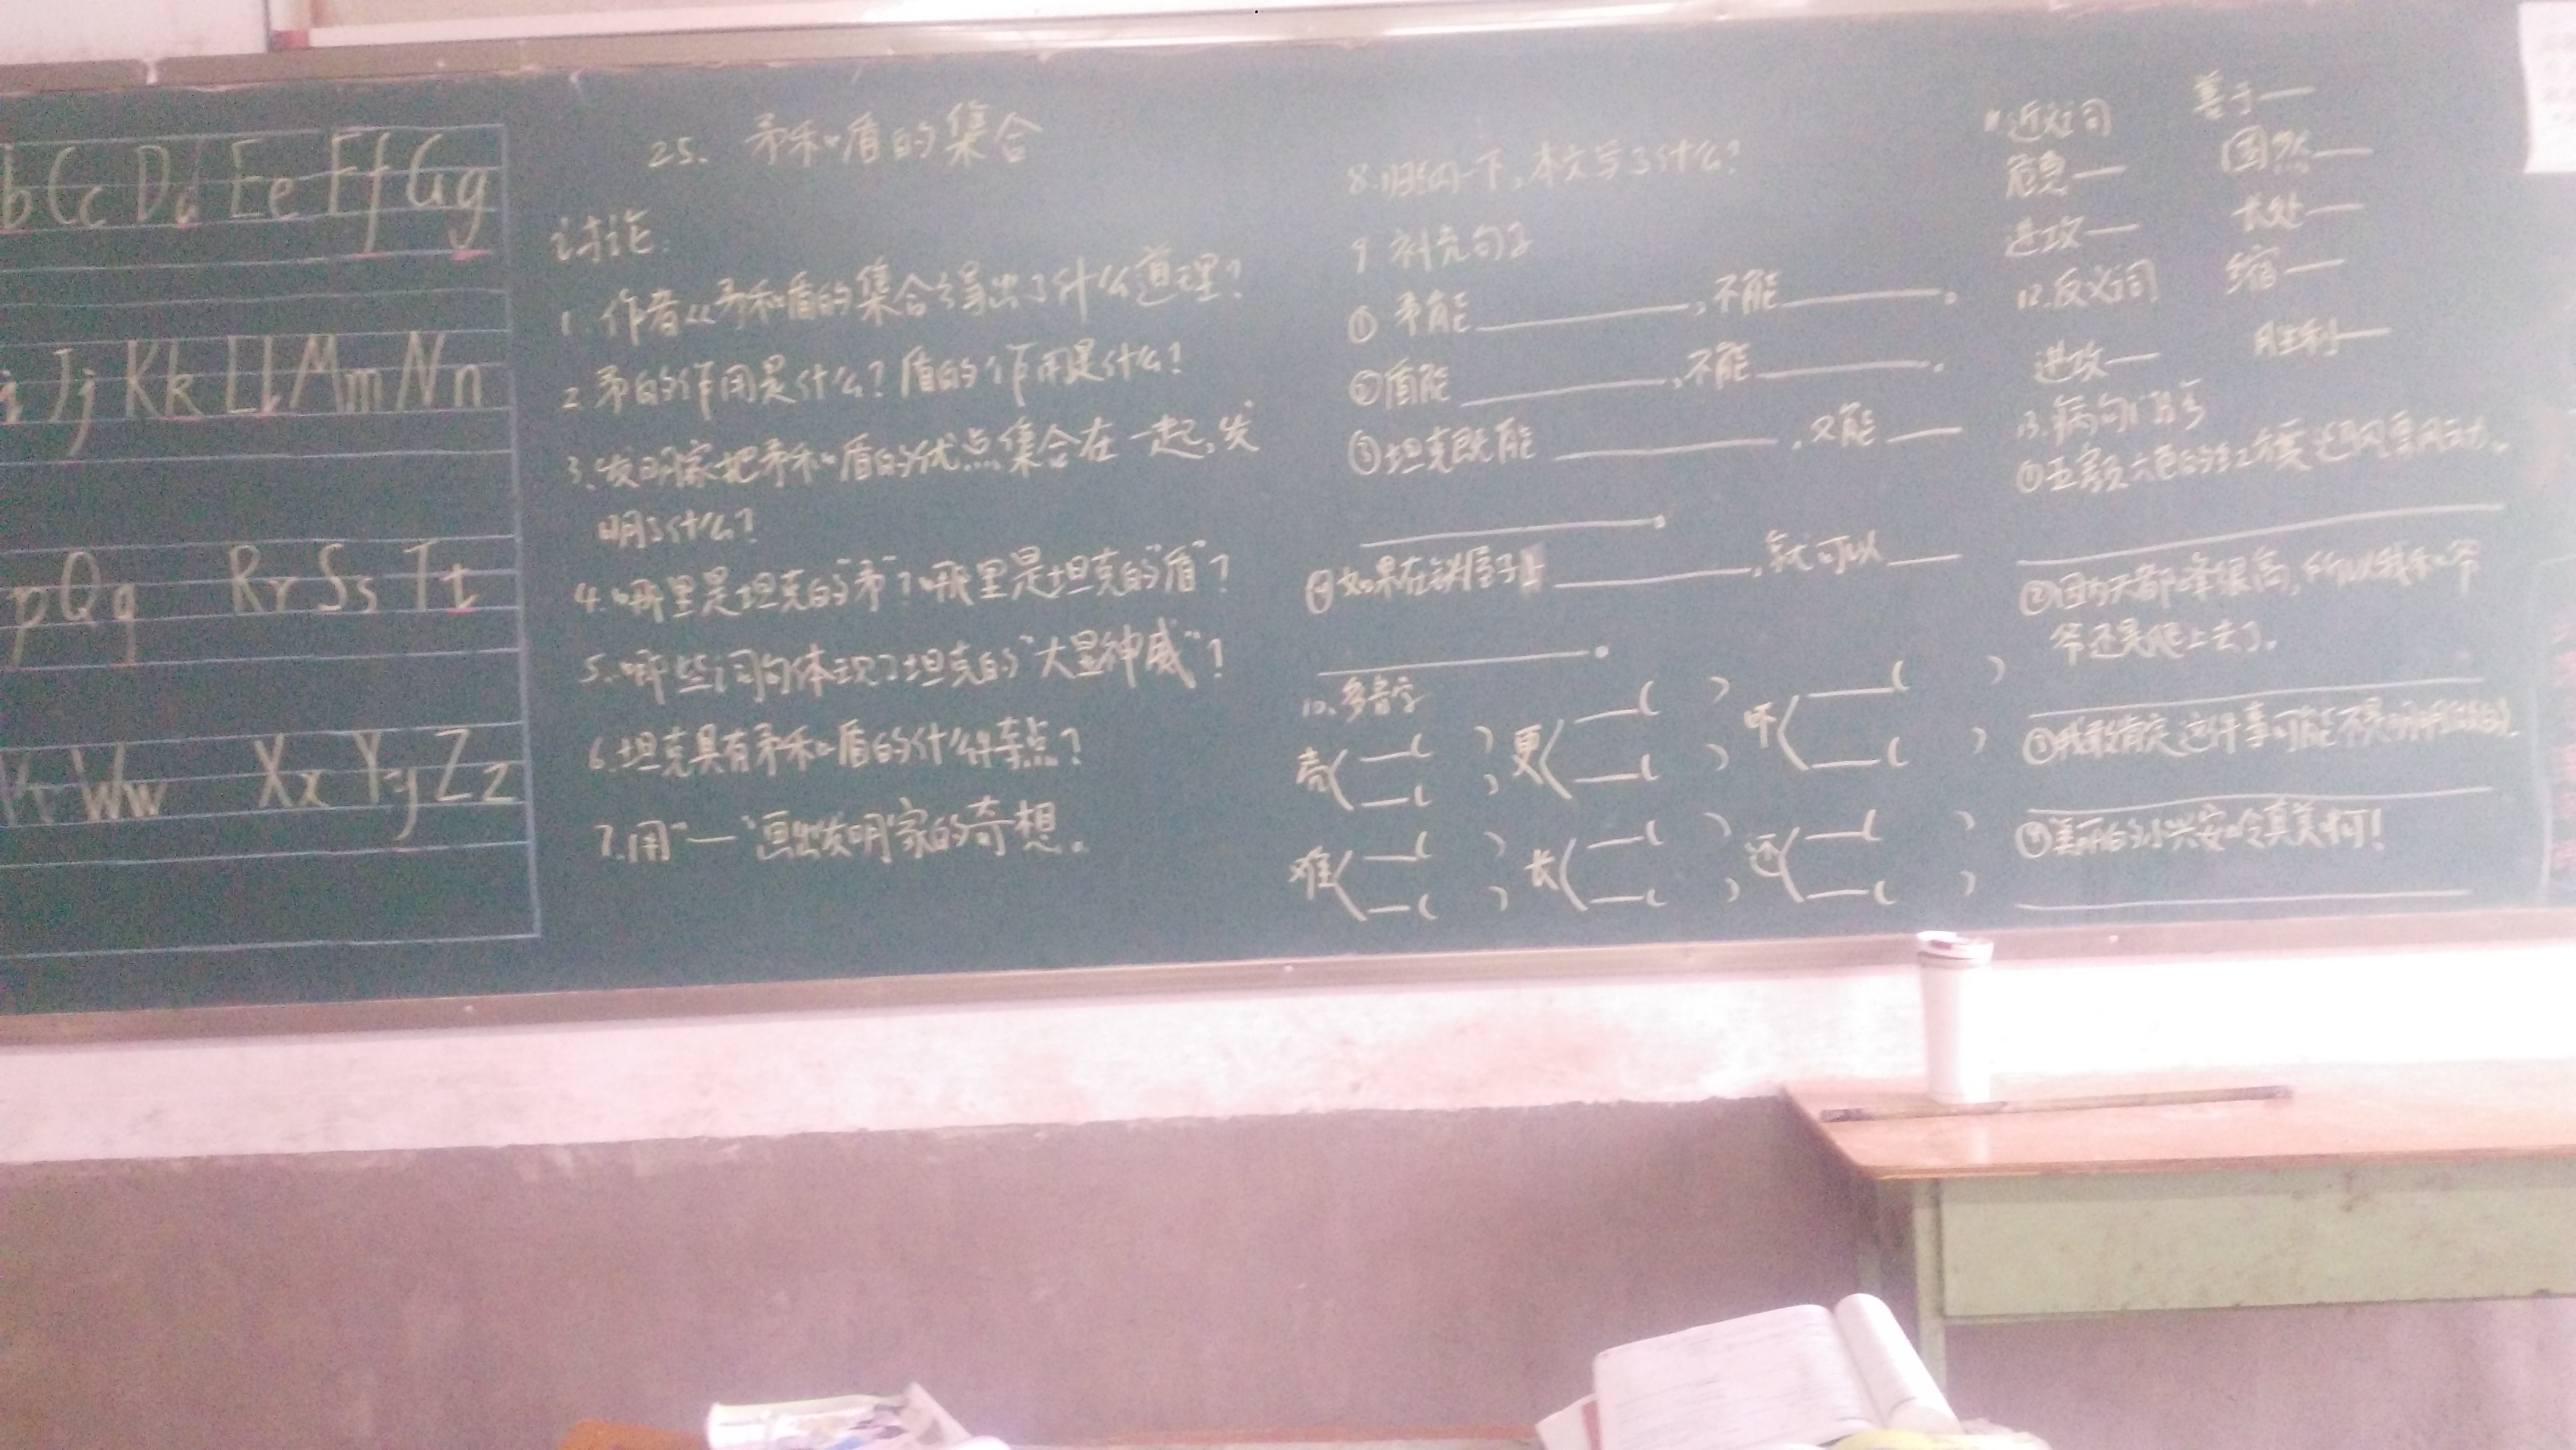 b Cc Dd Ee Ff Gg
i Jj Kk Ll Mm Nn
p Qq Rr Ss Tt
Ww Xx Yy Zz
25. 矛和盾的集合
讨论:
1. 作者从矛和盾的集合导出了什么道理?
2. 矛的作用是什么?盾的作用是什么?
3. 发明家把矛和盾的优点集合在一起,发
明了什么?
4. 哪里是坦克的"矛"?哪里是坦克的"盾"?
5. 哪些词句体现了坦克的"大显神威"?
6. 坦克具有矛和盾的什么特点?
7. 用"—"画出发明家的奇想。
8. 归纳一下,本文写了什么?
9. 补充句子
①矛能______,不能______。
②盾能______,不能______。
③坦克既能______,又能___
______。
④如果在铁屋子上______,就可以___
______。
10. 多音字
壳 ___( ) ___( ) 更 ___( ) ___( ) 吓 ___( ) ___( )
难 ___( ) ___( ) 长 ___( ) ___( ) 还 ___( ) ___( )
11. 近义词 善于—
危急— 固然—
进攻— 长处—
缩—
12. 反义词
进攻— 胜利—
13. 病句门诊
①五颜六色的红右
②因为天都峰很高,所以我和爷
爷还是爬上去了。
③我敢肯定这件事可能不是
④美丽的小兴安岭真美啊!